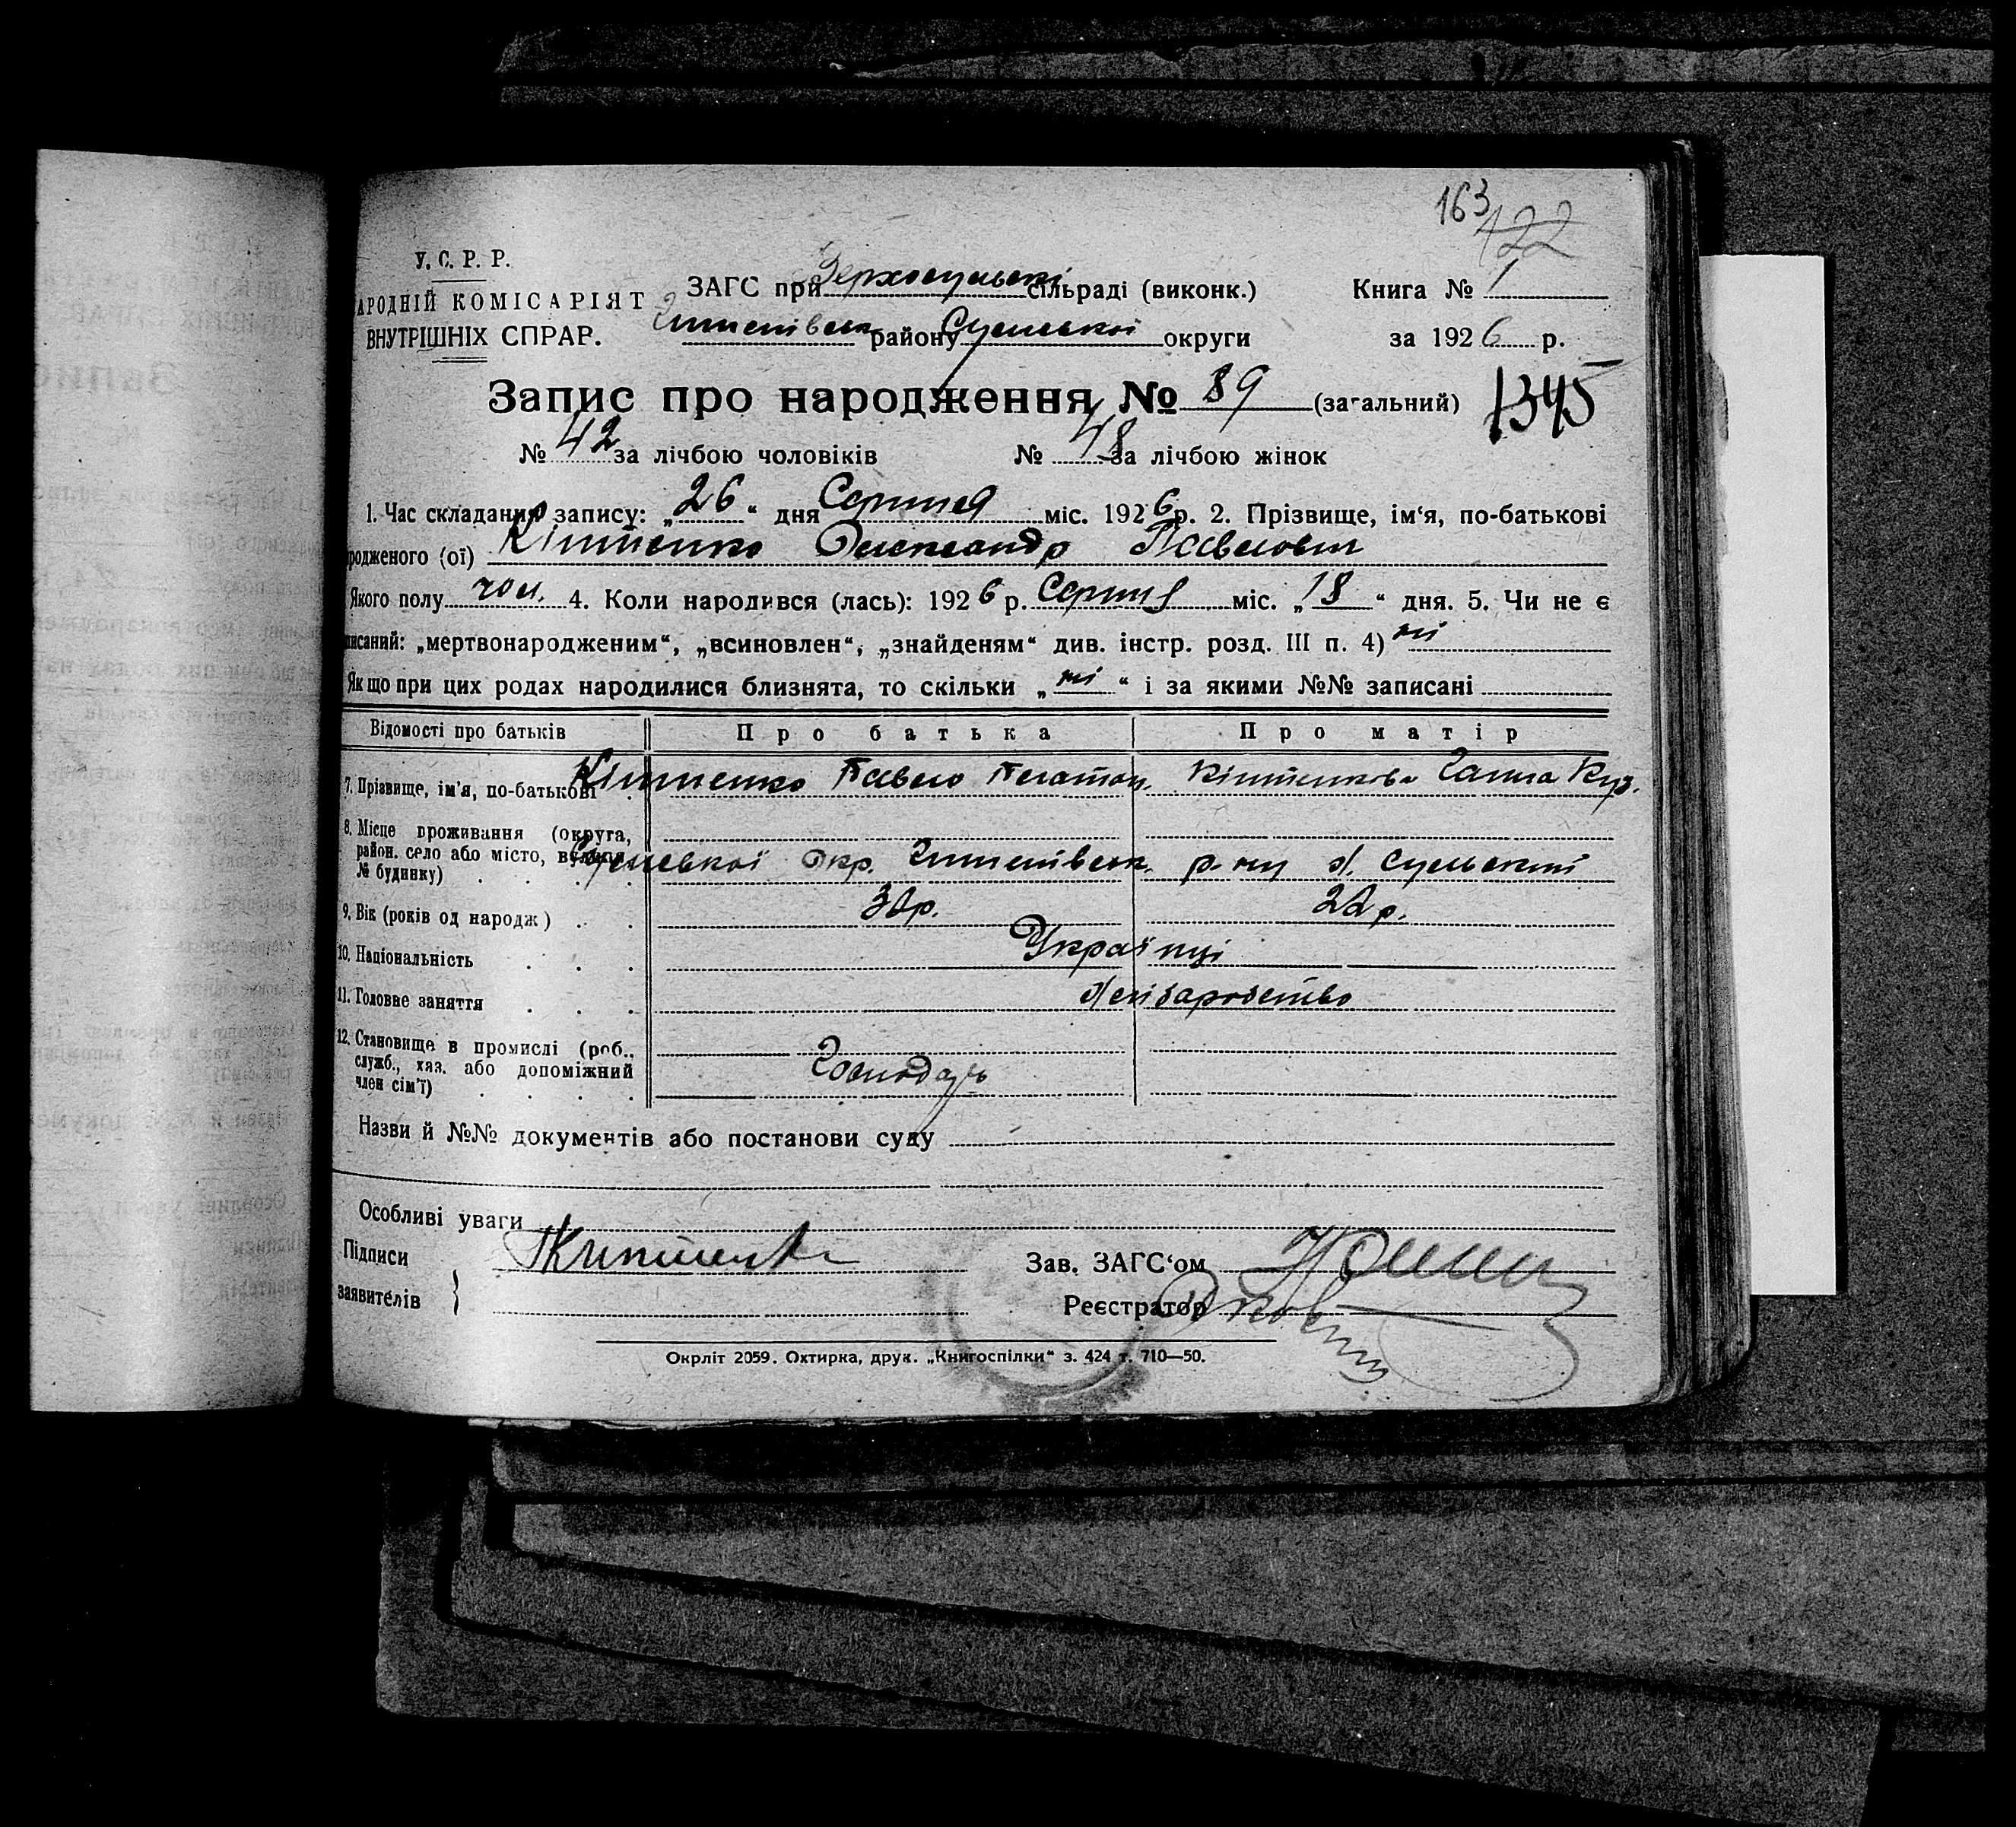 163
422
У. С. Р. Р.
АРОДНІЙ КОМІСАРІЯТ
ВНУТРІШНІХ СПРАВ.
ЗАГС при Верхосульські сільраді (виконк.)
району Сумської округи
Книга № 1
за 1926 р.
Запис про народження № 89 (загальний)
1345
№ 42 за лічбою чоловіків № 48 за лічбою жінок
1. Час складання запису: „26“ дня Серпня міс. 1926 р. 2. Прізвище, ім‘я, по-батькові
родженого (ої) Кіптенко Олександр Павлович
Якого полу чол. 4. Коли народився (лась): 1926 р. Серпня міс. „18“ дня. 5. Чи не є
писаний: „мертвонародженим“, „всиновлен“, „знайденям“ див. інстр. розд. III п. 4) ні
Якщо при цих родах народилися близнята, то скільки „ні“ і за якими №№ записані
Відомості про батьків Про батька Про матір
7. Прізвище, ім‘я, по-батькові Кіптенко Павло Платон. Кіптенкова Галина Куз.
8. Місце проживання (округа, район, село або місто, вулиця, № будинку) Сумської Окр. р-ну х. Сульський
9. Вік (років од народж) 30р. 22р.
10. Національність Українці
11. Головне заняття хліборобство
12. Становище в промислі (роб., служб., хяз. або допоміжний член сім‘ї) Господарь
Назви й №№ документів або постанови суду
Особливі уваги
Підписи
заявителів
Зав. ЗАГС‘ом
Реєстратор
Окрліт 2059. Охтирка, друк. „Книгоспілки“ з. 424 т. 710—50.